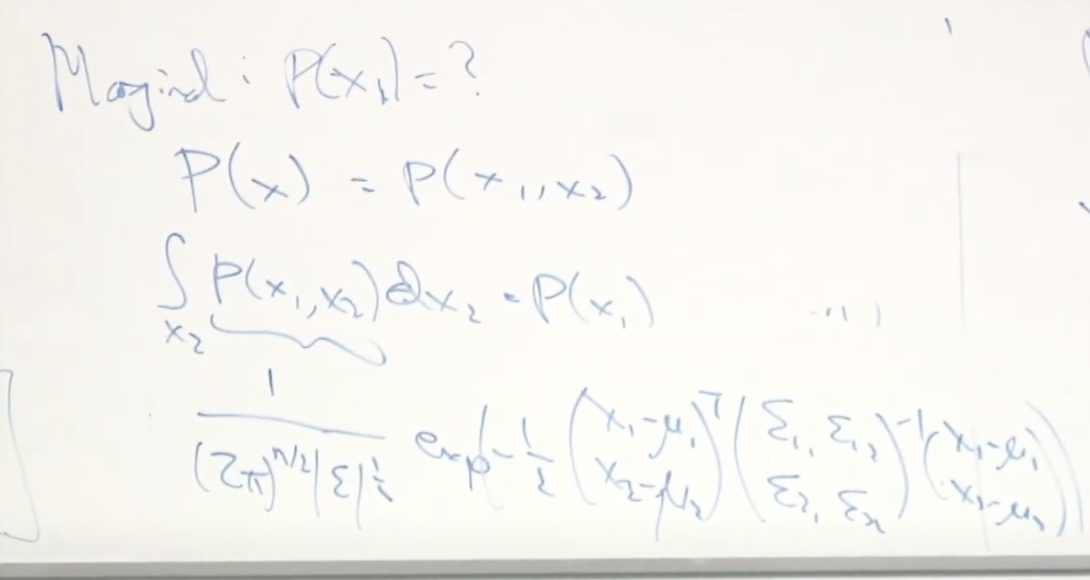 Marginal: P(x₁) = ?
P(x) = P(x₁, x₂)
∫_{x₂} P(x₁, x₂) dx₂ = P(x₁)
1 / ((2π)^{n/2} |Σ|^{1/2}) exp(-1/2 (x₁-μ₁; x₂-μ₂)^T (Σ₁₁ Σ₁₂; Σ₂₁ Σ₂₂)^{-1} (x₁-μ₁; x₂-μ₂))